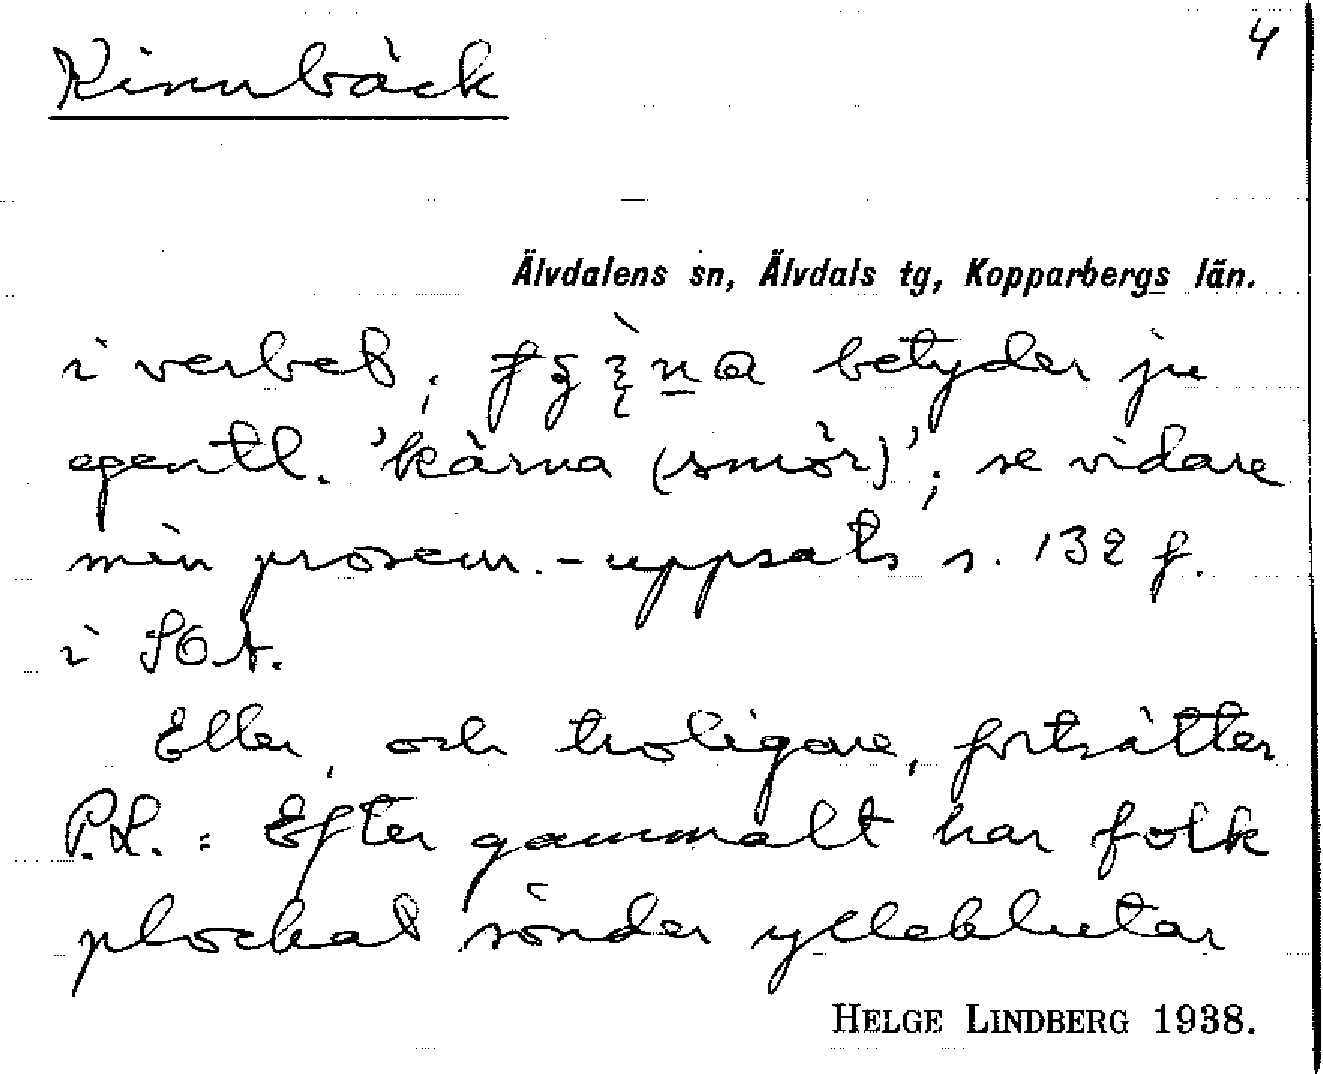 Kinnbäck
4
Älvdalens sn, Älvdals tg, Kopparbergs län.
i verbet; betyder ju
egentl. 'kärna (smör)'; se vidare
min prosem.-uppsats s. 132 f.
i SOA.
Eller, och troligare, fortsätter
P.L.: Efter gammalt har folk
plockat sönder ylleklutar
HELGE LINDBERG 1938.